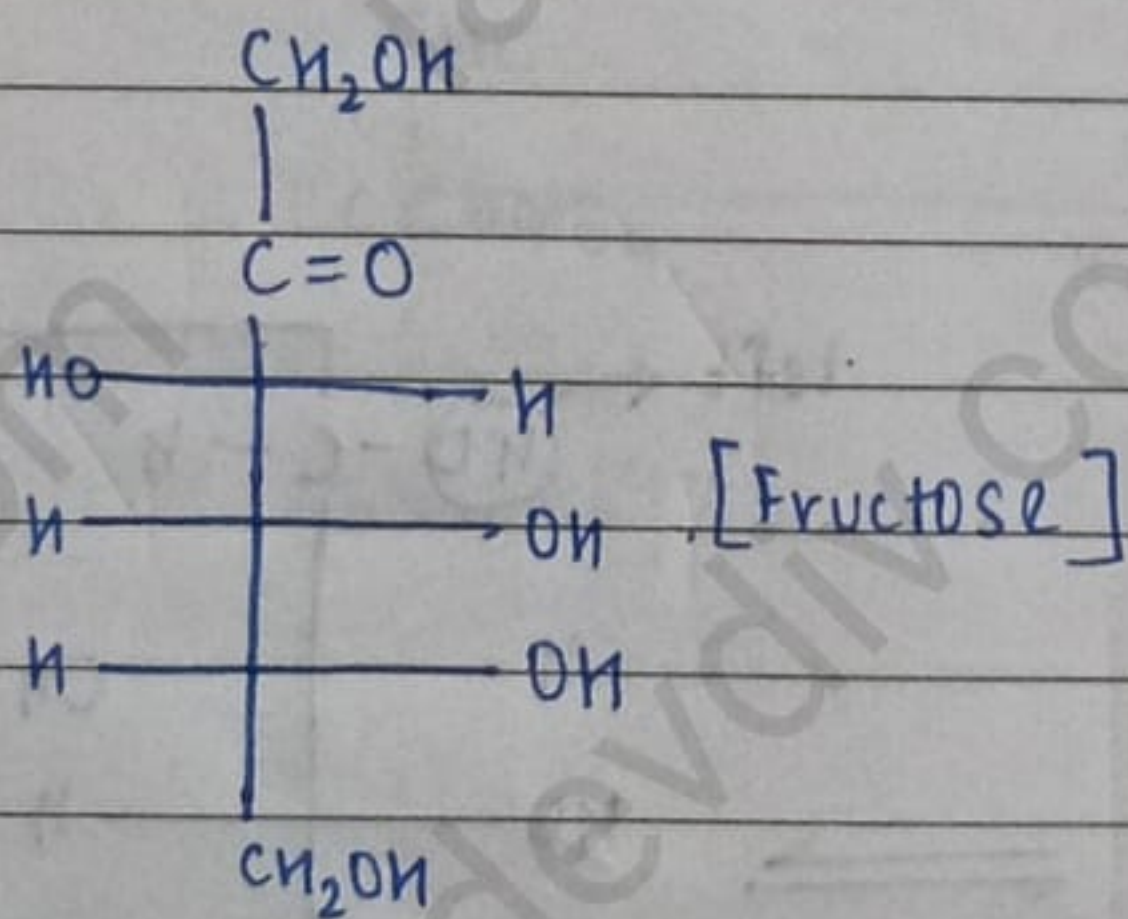 CH₂OH
C=O
HO H
H OH [Fructose]
H OH
CH₂OH